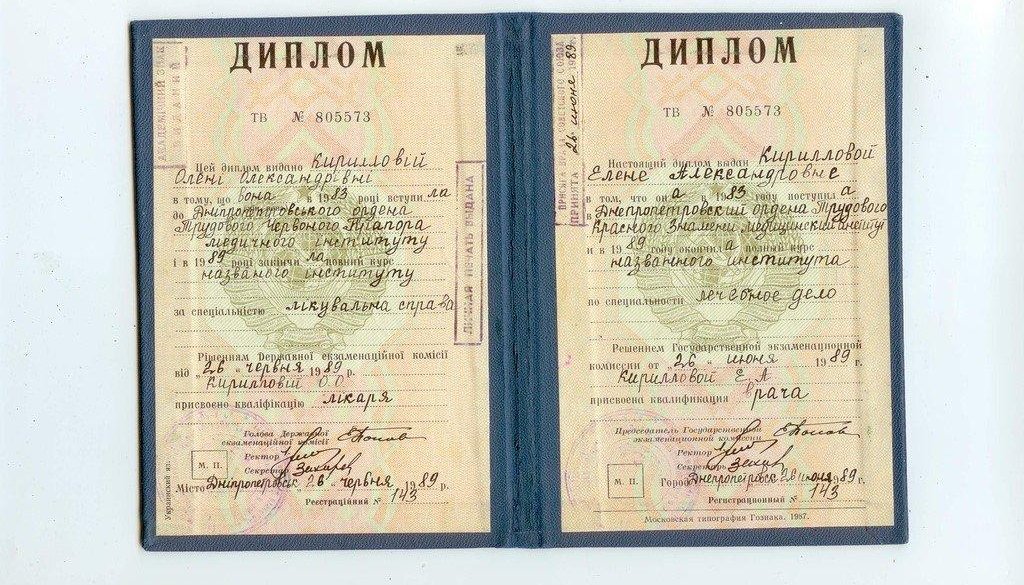 ДИПЛОМ
ТВ № 805573
Цей диплом видано Кирилловій
Олені Олександрівні
в тому, що вона в 1983 році вступила
до Дніпропетровського ордена
Трудового Червоного Прапора
медичного інституту
і в 1989 році закінчила повний курс
названого інституту
за спеціальністю лікувальна справа
Рішенням Державної екзаменаційної комісії
від "26" червня 1989 р.
Кирилловій О.О.
присвоєно кваліфікацію лікаря
Голова Державної
екзаменаційної комісії
Ректор
Секретар
М. П.
Місто Дніпропетровськ "26" червня 1989 р.
Реєстраційний № 143
АКАДЕМІЧНИЙ ЗНАК
ВИДАНИЙ
ПЕЧАТЬ ВЫДАНА
ДИПЛОМ
ТВ № 805573
Настоящий диплом выдан Кирилловой
Елене Александровне
в том, что она в 1983 году поступила
в Днепропетровский ордена Трудового
Красного Знамени медицинский институт
и в 1989 году окончила полный курс
названного института
по специальности лечебное дело
Решением Государственной экзаменационной
комиссии от "26" июня 1989 г.
Кирилловой Е.А.
присвоена квалификация врача
Председатель Государственной
экзаменационной комиссии
Ректор
Секретарь
М. П.
Город Днепропетровск 26 июня 1989 г.
Регистрационный № 143
Московская типография Гознака. 1987.
ПРИНЯТА 26 июня 1989